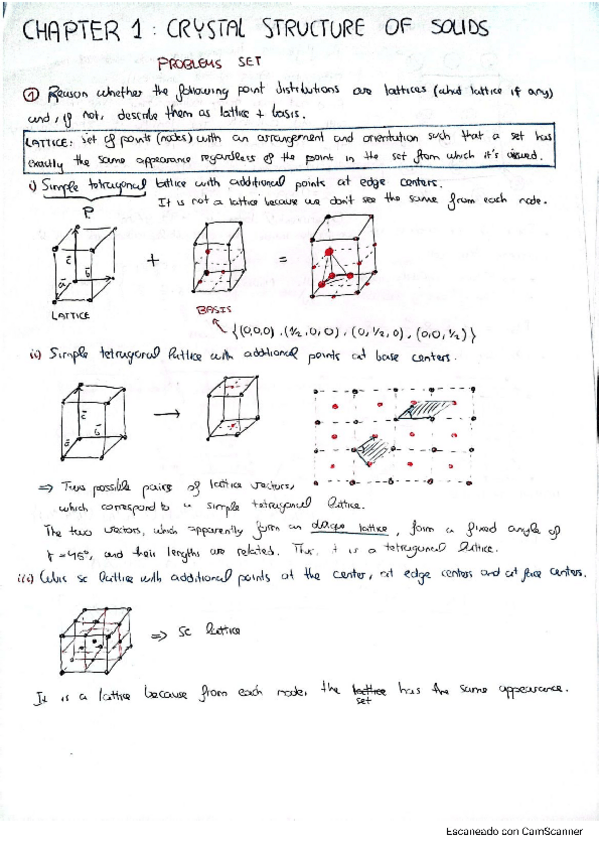 CHAPTER 1 : CRYSTAL STRUCTURE OF SOLIDS
PROBLEMS SET
① Reason whether the following point distributions are lattices (what lattice if any)
and, if not, describe them as lattice + basis.
LATTICE: set of points (nodes) with an arrangement and orientation such that a set has
exactly the same appearance regardless of the point in the set from which it's viewed.
i) Simple tetragonal lattice with additional points at edge centers.
P
It is not a lattice because we don't see the same from each node.
c
a
b
+
=
LATTICE
BASIS
{(0,0,0), (1/2,0,0), (0,1/2,0), (0,0,1/2)}
ii) Simple tetragonal lattice with additional points at base centers.
c
a
b
⇒ Two possible pairs of lattice vectors,
which correspond to a simple tetragonal lattice.
The two vectors, which apparently form an oblique lattice, form a fixed angle of
γ = 45°, and their lengths are related. Thus, it is a tetragonal lattice.
iii) Cubic sc lattice with additional points at the center, at edge centers and at face centers.
⇒ sc lattice
It is a lattice because from each node, the lattice has the same appearance.
set
Escaneado con CamScanner